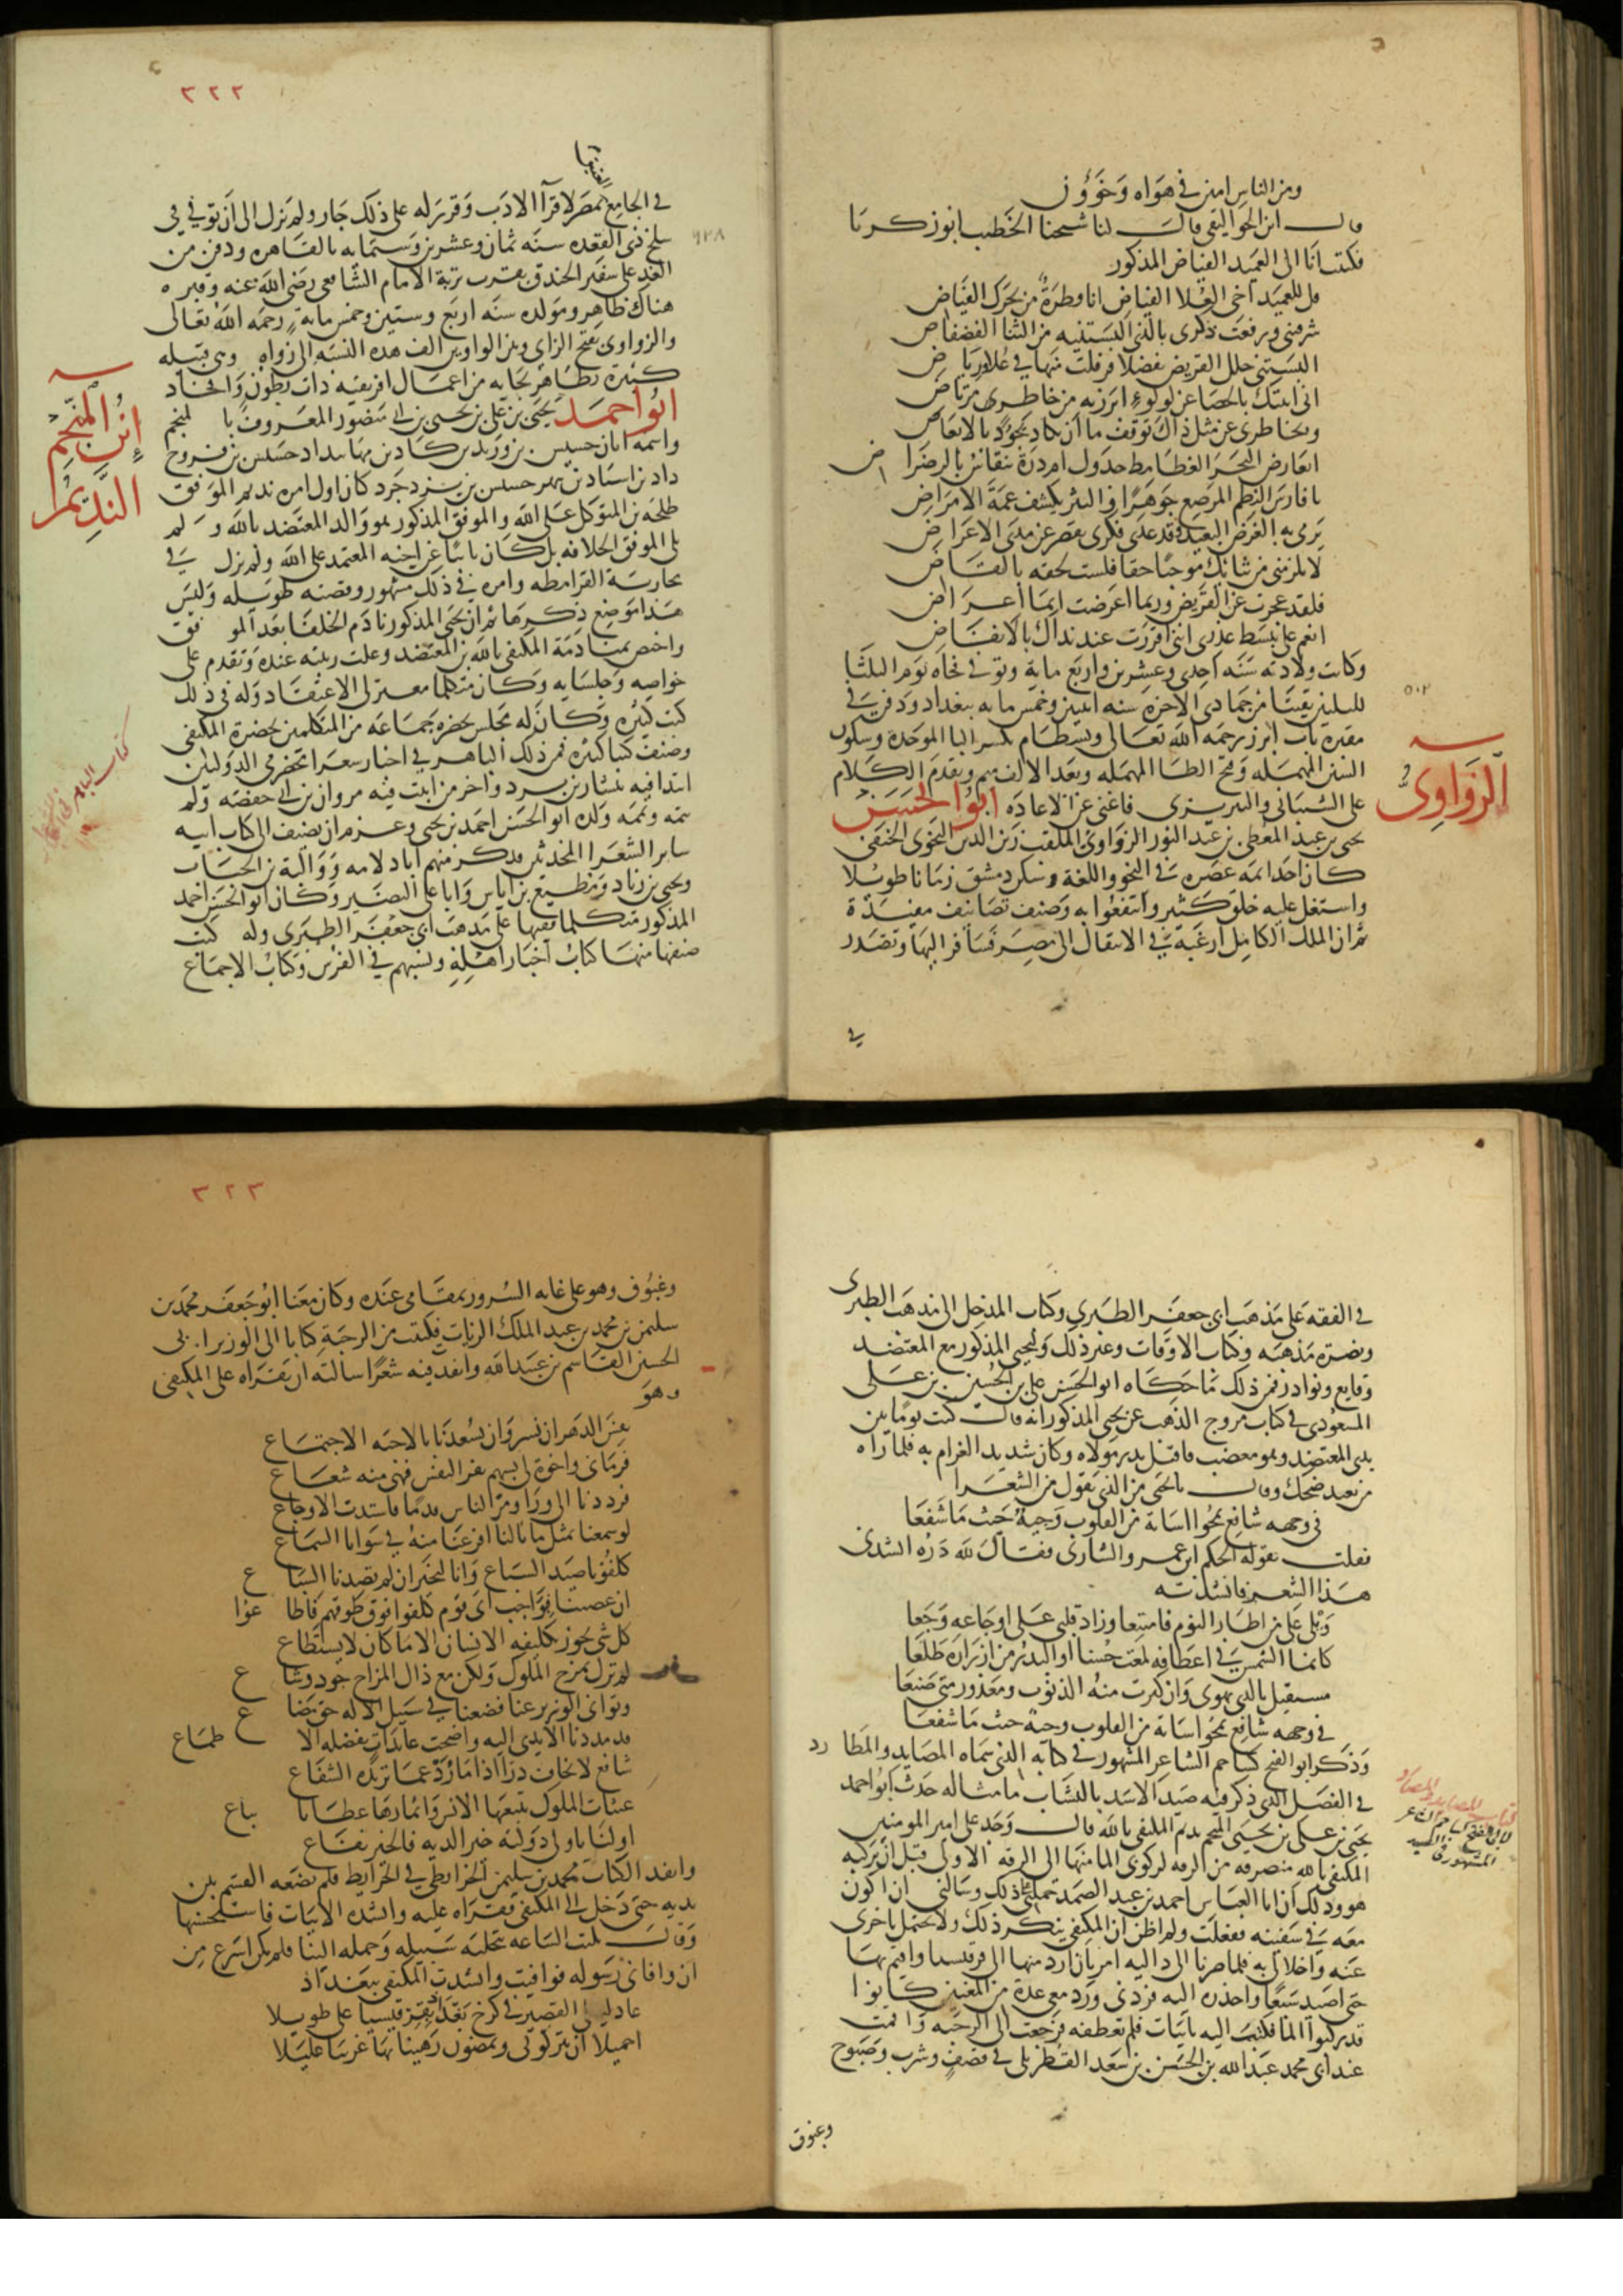 ومن الناس امين في هواه وخوون
قال ابن الجواليقي قال لنا شيخنا الخطيب ابو زكريا
فكتبت انا الى العميد الفياض المذكور
قل للعميد اخي العلا الفياض انا قطرة من بحرك الفياض
شرفتني ورفعت ذكري بالذي البستنيه من الثنا الفضفاض
البستني حلل القريض تفضلا فرفلت منها في علا ورياض
اني اتيتك بالحصا عن لولوء ابرزته من خاطر مرتاض
وبخاطري عن مثل ذاك توقف ما ان يكاد يجود بالانفاض
ايعارض البحر الغطامط جدول ام درة تنقاس بالرضراض
يا فارس النظم المرصع جوهرا والنثر يكشف غمة الامراض
يرمي به الغرض البعيد وقد غدا فكري يقصر عن مدى الاغراض
لا تلزمني من ثنائك موجبا حقا فلست لحقه بالقاض
فلقد عجزت عن القريض وربما اعرضت ايما اعراض
انعم علي ببسط عذري انني اقررت عند نداك بالانفاض
وكانت ولادته سنة احدى وعشرين واربع ماية وتوفي فجاه يوم الثلثا
لليلتين بقيتا من جمادى الاخرة سنه اثنين وخمس مايه ببغداد ودفن في
٥٠٢
مقبرة باب ابرز رحمه الله تعالى وبسطام بكسر البا الموحدة وسكون
السين المهمله وفتح الطا المهمله وبعد الالف ميم وتقدم الكلام
على الشيباني والتبريزي فاغنى عن الاعادة ابو الحسين
الزواوي
يحيى بن عبد المعطي بن عبد النور الزواوي الملقب زين الدين النحوي الحنفي
كان احد ايمه عصره في النحو واللغة وسكن دمشق زمانا طويلا
واشتغل عليه خلق كثير وانتفعوا به وصنف تصانيف مفيدة
ثم ان الملك الكامل ارغبه في الانتقال الى مصر فسافر اليها وتصدر
في
٣٢٢
في الجامع بمصر لاقرآ الادب وقرر له على ذلك جار ولم يزل الى ان توفي في
سلخ ذي القعده سنه ثمان وعشرين وستمايه بالقاهره ودفن من
٦٢٨
الغد على سفير الخندق بقرب تربة الامام الشافعي رضي الله عنه وقبره
هناك ظاهر ومولده سنه اربع وستين وخمس ماية رحمه الله تعالى
والزواوي بفتح الزاي وبين الواوين الف هذه النسبه الى زواوه وهي قبيله
كبيرة بظاهر بجايه من اعمال افريقيه ذات بطون وافخاذ
ابو احمد يحيى بن علي بن يحيى بن ابي منصور المعروف بالمنجم
ابن المنجم النديم
واسمه ابان حسيس بن وريد بن كاد بن مهابنداد حسيس بن فروخ
داد بن استاد بن مهر حسيس بن يزدجرد كان اول امره نديم الموفق
طلحة بن المتوكل على الله والموفق المذكور هو والد المعتضد بالله ولم
يل الموفق الخلافه بل كان نايبا عن اخيه المعتمد على الله ولم يزل في
محاربة القرامطه وامره في ذلك مشهور وقصته طويله وليس
هذا موضع ذكرها ثم ان يحيى المذكور نادم الخلفا بعد الموفق
واختص بمنادمة المكتفي بالله بن المعتضد وعلت رتبته عنده وتقدم على
خواصه وجلسايه وكان متكلما معتزلي الاعتقاد وله في ذلك
كتب كثيره وكان له مجلس يحضره جماعه من المتكلمين بحضرة المكتفي
وصنف كتبا كثيره فمن ذلك الباهر في اخبار شعرا مخضرمي الدولتين
ابتدا فيه ببشار بن برد واخر من اثبت فيه مروان بن ابي حفصه ولم
يتمه وتممه ولده ابو الحسن احمد بن يحيى وعزم ان يضيف الى كتاب ابيه
ساير الشعرا المحدثين فذكر منهم ابا دلامه ووالبة بن الحباب
ويحيى بن زياد ومطيع بن اياس وابا علي البصير وكان ابو الحسن احمد
المذكور متكلما فقيها على مذهب ابي جعفر الطبري وله كتب
صنفها منها كتاب اخبار اهله ونسبهم في الفرس وكتاب الاجماع
في الفقه على مذهب ابي جعفر الطبري وكتاب المدخل الى مذهب الطبري
ونصرة مذهبه وكتاب الاوقات وغير ذلك وليحيى المذكور مع المعتضد
وقايع ونوادر فمن ذلك ما حكاه ابو الحسن علي بن الحسين بن علي
المسعودي في كتاب مروج الذهب عن يحيى المذكور انه قال كنت يوما بين
يدي المعتضد وهو مغضب فاقبل بدر مولاه وكان شديد الغرام به فلما راه
من بعيد ضحك وقال يا يحيى من الذي يقول من الشعرا
في وجهه شافع يمحوا اساته من القلوب وجيه حيث ما شفعا
فقلت يقوله الحكم ابن عمرو الشاري فقال لله دره انشدني
هذا الشعر فانشدته
ويلي على من اطار النوم فامتنعا وزاد قلبي على اوجاعه وجعا
كانما الشمس في اعطافه لمعت حسنا او البدر من ازراره طلعا
مستقبل بالذي يهوى وان كثرت منه الذنوب ومعذور متى صنعا
في وجهه شافع يمحوا اساته من القلوب وجيه حيث ما شفعا
وذكر ابو الفتح كشاجم الشاعر المشهور في كتابه الذي سماه المصايد والمطارد
في الفصل الذي ذكر فيه صيد الاسد بالنشاب ما مثاله حدث ابو احمد
يحيى بن علي بن يحيى المنجم نديم المكتفي بالله قال وجد علي امير المومنين
المكتفي بالله منصرفه من الرقه لركوبي الما منها الى الرقه الاولى قبل ان يركبه
هو وذلك ان ابا العباس احمد بن عبد الصمد حملني على ذلك وسالني ان اكون
معه في سفينه ففعلت ولم اظن ان المكتفي ينكر ذلك ولا يحتمل تاخري
عنه واخلالي به فلما صرنا الى داليه امر بان ارد منها الى قرقيسيا واقيم بها
حتى اصيد سبعا واحدره اليه فردني ورد معي عدة من المغنين كانوا
قد ركبوا الما فكتبت اليه بابيات فلم تعطفه فرجعت الى الرحبه واقمت
عند ابي محمد عبد الله بن الحسن بن سعد القطربلي في قصف وشرب وصبوح
وغبوق
٣٢٣
وغبوق وهو على غايه السرور بمقامي عنده وكان معنا ابو جعفر محمد بن
سليمن بن محمد بن عبد الملك الزيات فكتبت من الرحبة كتابا الى الوزير ابي
الحسين القاسم بن عبيد الله وانفذ فيه شعرا سالته ان يقراه على المكتفي
وهو
فرماني واخوتي بسهم
فرددنا الى ورا ومر الناس قدما فاستدت الاوجاع
لو سمعنا بمثل ما نالنا افزعنا منه في سوانا السماع
كلفونا صيد السباع وانا لبخير ان لم تصدنا السباع
ان عصينا فواجب اي قوم كلفوا فوق طوقهم فاطاعوا
كل شي يجوز تكليفه الانسان الا ما كان لا يستطاع
لم تزل تمزح الملوك ولكن مع ذاك المزاح جود وشاع
وتوانى الوزير عنا فضعنا في سبيل الاله حق مضاع
قد مددنا الايدي اليه واضحت عايدات بفضله الاطماع
شافع لا نخاف ردا اذا ما رد عما تريده الشفاع
عثرات الملوك يتبعها الانس واثمارها عطايا تباع
وانفذ الكتاب محمد بن سليمن الخرايطي في الخرايط فلم يضعه القسم من
يديه حتى دخل الى المكتفي فقراه عليه وانشده الابيات فاستحسنها
وقال تكتب الساعه بتخلية سبيله وحمله الينا فلم يكن اسرع من
ان وافاني رسوله فوافيت وانشدت المكتفي ببغداد
القصير في كرخ بغداد بقرقيسيا علي طويلا
اجميلا ان يتركوني ويمضون رهينا بها غريبا عليلا